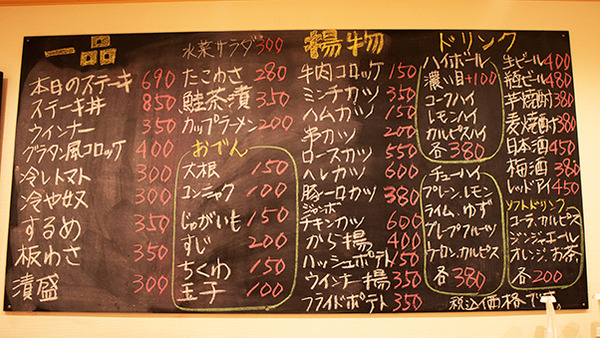 一品
本日のステーキ 690
ステーキ丼 850
ウインナー 350
グラタン風コロッケ 400
冷しトマト 300
冷や奴 300
するめ 350
板わさ 350
漬盛 300
水菜サラダ300
たこわさ 280
鮭茶漬 350
カップラーメン 200
おでん
大根 150
コンニャク 100
じゃがいも 150
すじ 200
ちくわ 150
玉子 100
揚物
牛肉コロッケ 150
ミンチカツ 350
ハムカツ 150
串カツ 200
ロースカツ 550
ヘレカツ 600
豚一口カツ 380
ジャンボ
チキンカツ 600
から揚 400
ハッシュポテト 150
ウインナー揚 350
フライドポテト 350
ドリンク
ハイボール
濃い目+100
コークハイ
レモンハイ
カルピスハイ
各380
チューハイ
プレーン、レモン
ライム、ゆず
グレープフルーツ
ウーロン、カルピス
各380
生ビール 400
瓶ビール 480
芋焼酎 380
麦焼酎 380
日本酒 450
梅酒 380
レッドアイ 450
ソフトドリンク
コーラ、カルピス
ジンジャエール
オレンジ、お茶
各200
税込価格です